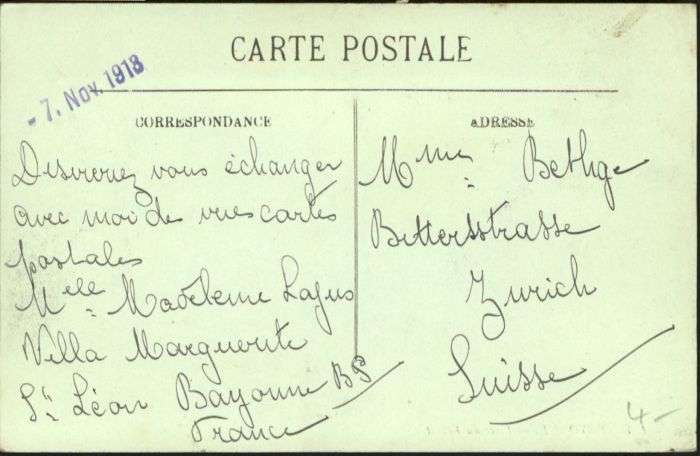 CARTE POSTALE
- 7. Nov. 1913
CORRESPONDANCE
Desireriez vous échanger
avec moi des vues cartes
postales
Melle Madeleine Lajus
Villa Marguerite
St Léon Bayonne BP
France
ADRESSE
Mme Bethge
Zurich
Suisse
4-